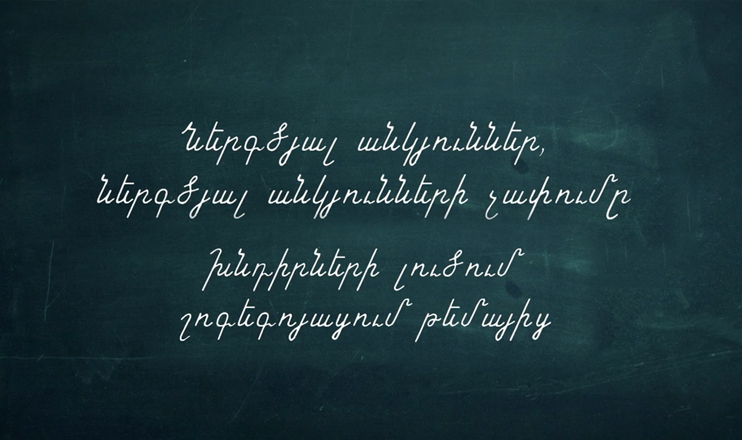 Ներգծյալ անկյուններ,
ներգծյալ անկյունների չափումը
խնդիրների լուծում
շոգեգոյացում թեմայից